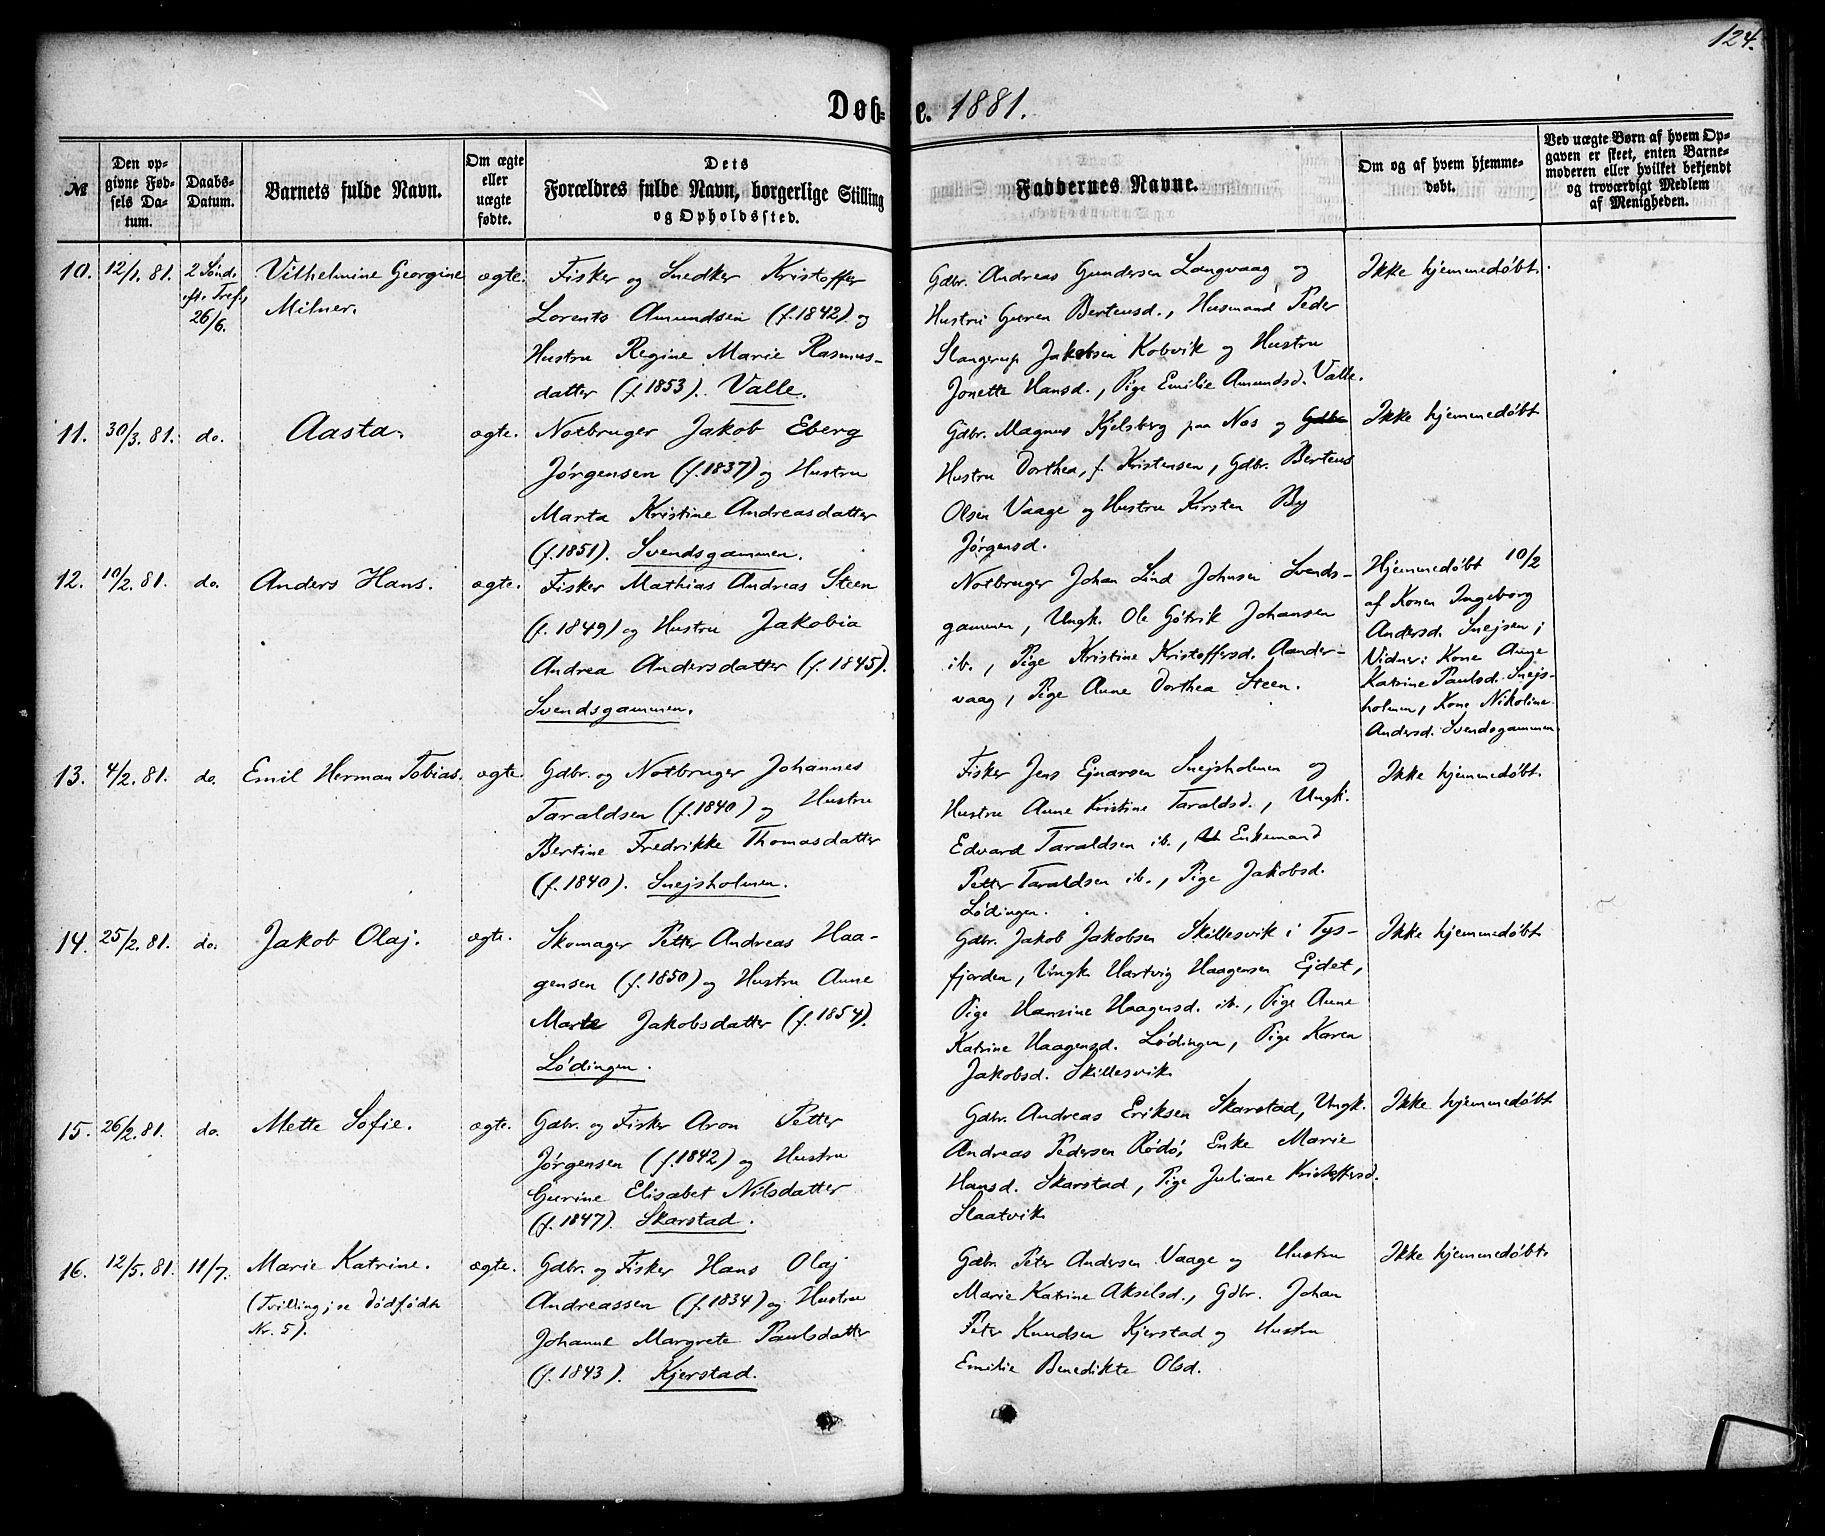 124.
Døb- e. 1881.
№
Den op-
givne Fød-
sels Da-
tum.
Daabs-
Datum.
Barnets fulde Navn.
Om ægte
eller
uægte
fødte.
Dets
Forældres fulde Navn, borgerlige Stilling
og Opholdssted.
Faddernes Navne.
Om og af hvem hjemme-
døbt.
Ved uægte Børn af hvem Op-
gaven er skeet, enten Barne-
moderen eller hvilket bekjendt
og troværdigt Medlem
af Menigheden.
10.
12/1. 81.
2 Sønd.
eft. Tref.
26/6.
Vilhelmine Georgine
Milner.
ægte.
Fisker og Snedker Kristoffer
Lorents Amundsen (f. 1842) og
Hustru Regine Marie Rasmus-
datter (f. 1853). Valle.
Gdbr. Andreas Gundersen Langvaag og
Hustru Guren Berteusd., Husmand Peder
Slangerup Jakobsen Kobvik og Hustru
Jonette Hansd., Pige Emilie Amundsd. Valle.
Ikke hjemmedøbt.
11.
30/3. 81.
do.
Aasta.
ægte.
Notbruger Jakob Eberg
Jørgensen (f. 1837) og Hustru
Marta Kristine Andreasdatter
(f. 1851). Svendsgammen.
Gdbr. Magnus Kjelsberg paa Nos og Gdbr
Hustru Dorthea, f. Kristensen, Gdbr. Berteus
Olsen Vaage og Hustru Kirsten By
Jørgensd.
Ikke hjemmedøbt
12.
10/2. 81.
do.
Anders Hans.
ægte.
Fisker Mathias Andreas Steen
(f. 1849) og Hustru Jakobia
Andrea Andersdatter (f. 1845).
Svendsgammen.
Notbruger Johan Lind Johnsen Svends-
gammen, Ungk. Ole Götrik Johansen
ib., Pige Kristine Kristoffersd. Aander-
vaag, Pige Anne Dorthea Steen.
Hjemmedøbt 10/2
af Konen Ingeborg
Andersd. Snejsen;
Vidner: Kone Ange
Katrine Paulsd. Snejs-
holmen, Kone Nikoline
Andersd. Svendsgammen.
13.
4/2. 81.
do.
Emil Herman Tobias.
ægte.
Gdbr. og Notbruger Johannes
Taraldsen (f. 1840) og Hustru
Bertine Fredrikke Thomasdatter
(f. 1840). Snejsholmen.
Fisker Jens Ejnarsen Snejsholmen og
Hustru Anne Kristine Taraldsd., Ungk.
Edvard Taraldsen ib., Enkemand
Petter Taraldsen ib., Pige Jakobsd.
Lödingen.
Ikke hjemmedøbt.
14.
25/2. 81.
do.
Jakob Olaj.
ægte.
Skomager Petter Andreas Haa-
gensen (f. 1850) og Hustru Anne
Marte Jakobsdatter (f. 1854).
Lödingen.
Gdbr. Jakob Jakobsen Skillesvik i Tys-
fjorden, Ungk. Hartvig Haagensen Ejdet,
Pige Hansine Haagensd. ib., Pige Anne
Katrine Haagensd. Lödingen, Pige Karen
Jakobsd. Skillesvik
Ikke hjemmedøbt
15.
26/2. 81.
do.
Mette Sofie.
ægte.
Gdbr. og Fisker Aron Petter
Jörgensen (f. 1842) og Hustru
Gurine Elisabet Nilsdatter
(f. 1847). Skarstad.
Gdbr. Andreas Eriksen Skarstad, Ungk.
Andreas Pedersen Rödö, Enke Marie
Hansd. Skarstad, Pige Juliane Kristoffersd.
Slaatvik
Ikke hjemmedøbt
16.
12/5. 81.
11/7.
Marie Katrine.
(Tvilling; se dødfødte
Nr. 5).
ægte.
Gdbr. og Fisker Hans Olaj
Andreassen (f. 1834) og Hustru
Johanne Margrete Paulsdatter
(f. 1843). Kjerstad.
Gdbr. Peter Andersen Vaage og Hustru
Marie Katrine Akselsd., Gdbr. Johan
Peter Knudsen Kjerstad og Hustru
Emilie Benedikte Olsd.
Ikke hjemmedøbt.